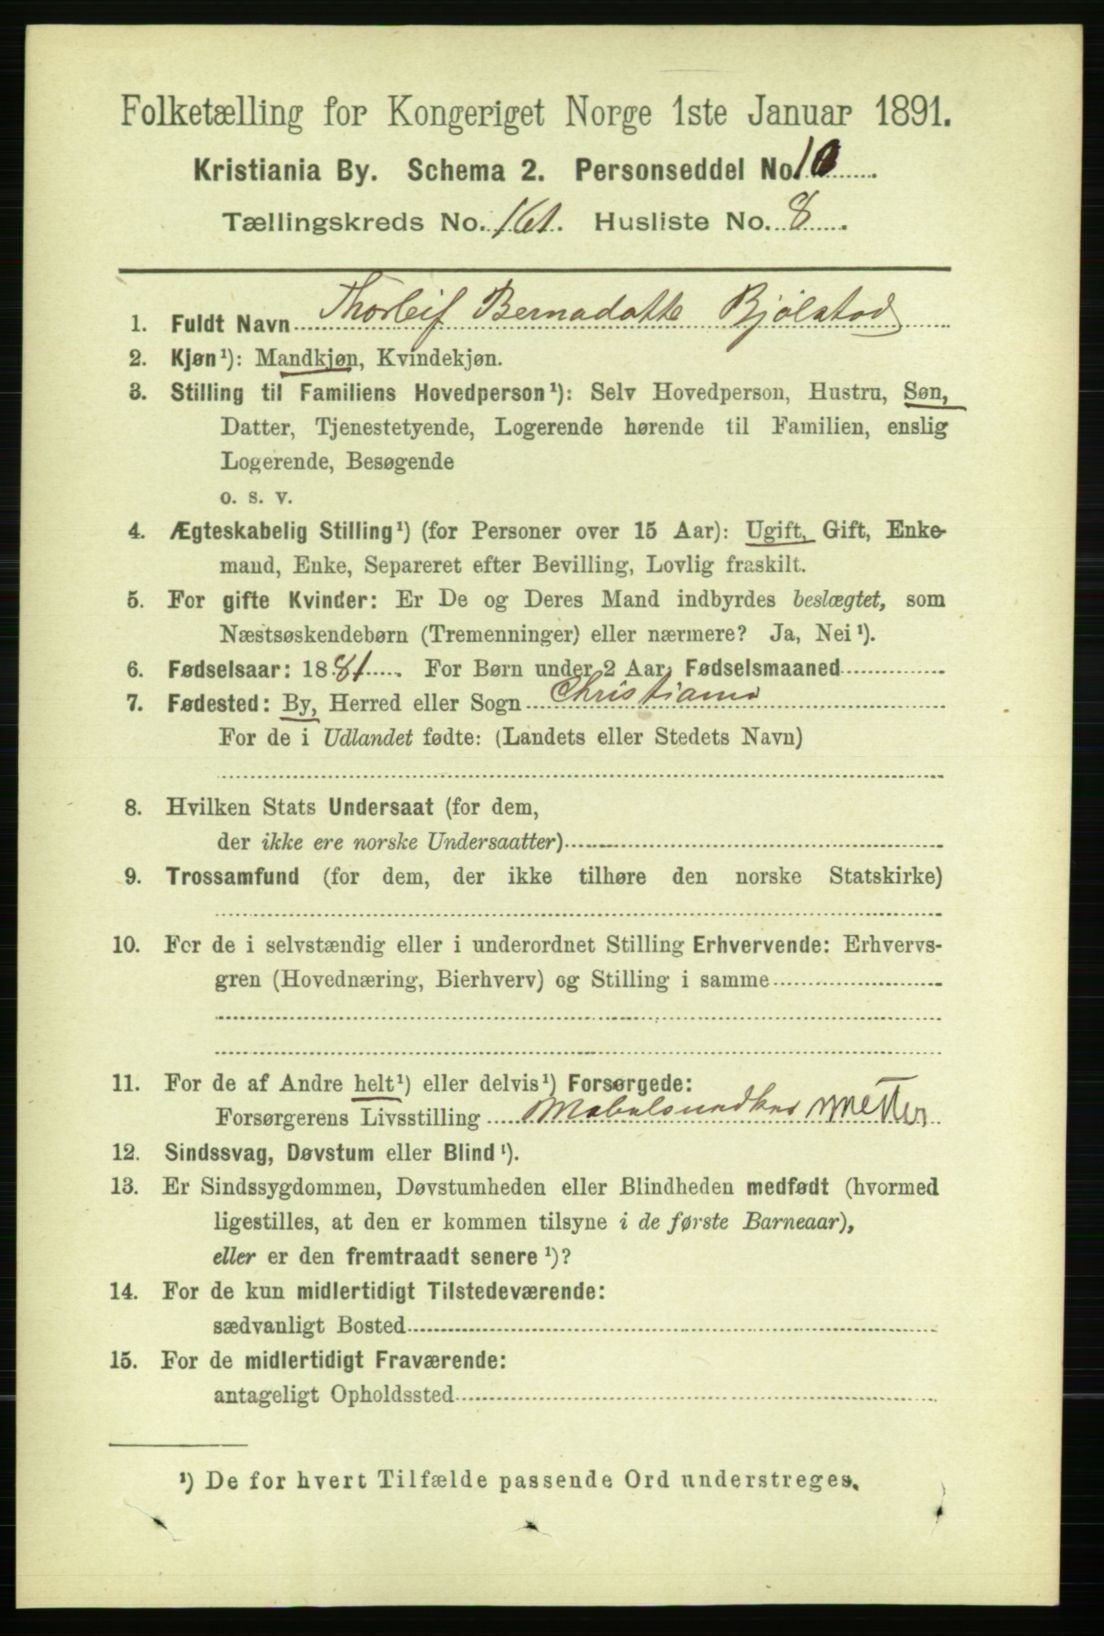 Folketælling for Kongeriget Norge 1ste Januar 1891.
Kristiania By. Schema 2. Personseddel No. 10
Tællingskreds No. 161. Husliste No. 8.
1. Fuldt Navn Thorleif Bernadotte Bjölstad
2. Kjøn¹): Mandkjøn, Kvindekjøn.
3. Stilling til Familiens Hovedperson¹): Selv Hovedperson, Hustru, Søn,
Datter, Tjenestetyende, Logerende hørende til Familien, enslig
Logerende, Besøgende
o. s. v.
4. Ægteskabelig Stilling¹) (for Personer over 15 Aar): Ugift, Gift, Enke-
mand, Enke, Separeret efter Bevilling, Lovlig fraskilt.
5. For gifte Kvinder: Er De og Deres Mand indbyrdes beslægtet, som
Næstsøskendebørn (Tremenninger) eller nærmere? Ja, Nei¹).
6. Fødselsaar: 1881. For Børn under 2 Aar, Fødselsmaaned
7. Fødested: By, Herred eller Sogn Christiania
For de i Udlandet fødte: (Landets eller Stedets Navn)
8. Hvilken Stats Undersaat (for dem,
der ikke ere norske Undersaatter)
9. Trossamfund (for dem, der ikke tilhøre den norske Statskirke)
10. For de i selvstændig eller i underordnet Stilling Erhvervende: Erhvervs-
gren (Hovednæring, Bierhverv) og Stilling i samme
11. For de af Andre helt¹) eller delvis¹) Forsørgede:
Forsørgerens Livsstilling mester
12. Sindssvag, Døvstum eller Blind¹).
13. Er Sindssygdommen, Døvstumheden eller Blindheden medfødt (hvormed
ligestilles, at den er kommen tilsyne i de første Barneaar),
eller er den fremtraadt senere¹)?
14. For de kun midlertidigt Tilstedeværende:
sædvanligt Bosted
15. For de midlertidigt Fraværende:
antageligt Opholdssted
¹) De for hvert Tilfælde passende Ord understreges.